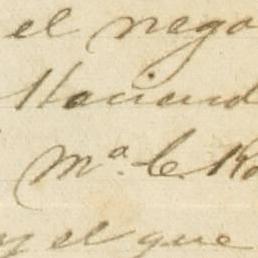 el nego
Haciend
Mª. C. Ro
y el que